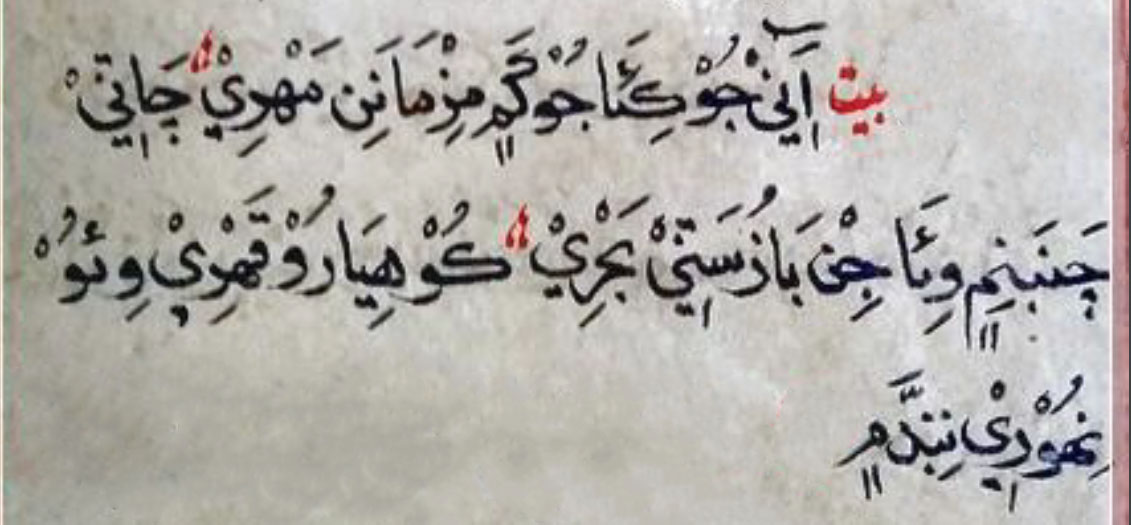 بيت آيٖنۡ جُوۡکِئَا جُوۡکَمٍ مِزۡمَانَنِ مَهۡرِيۡ؞ چَاتِيۡ
چَنبَنِمٍ وِئَا جِنۡ بَازُسَتِيۡ بَجَرِيۡ؞ کُوۡهِيَارُوۡ قَهۡرِيۡ وِئوُۡ
نِهوُۡرِيۡ نِنڊَّمٍ